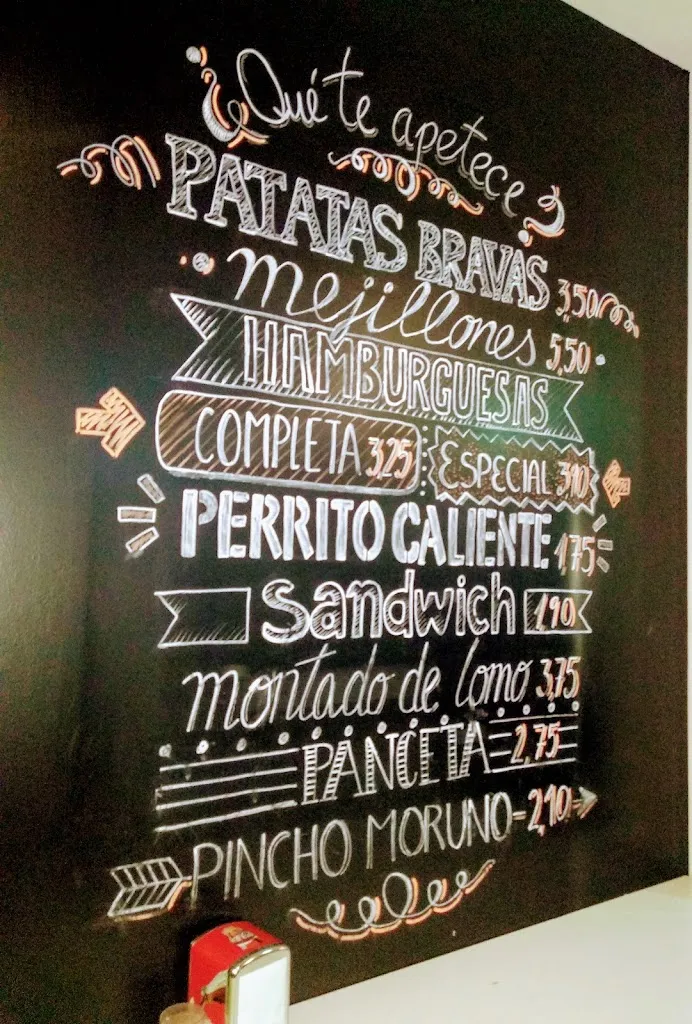 ¿Qué te apetece?
PATATAS BRAVAS 3,50
mejillones 5,50
HAMBURGUESAS
COMPLETA 3,25 ESPECIAL 3,10
PERRITO CALIENTE 1,75
Sandwich 1,90
montado de lomo 3,75
PANCETA 2,75
PINCHO MORUNO 2,10